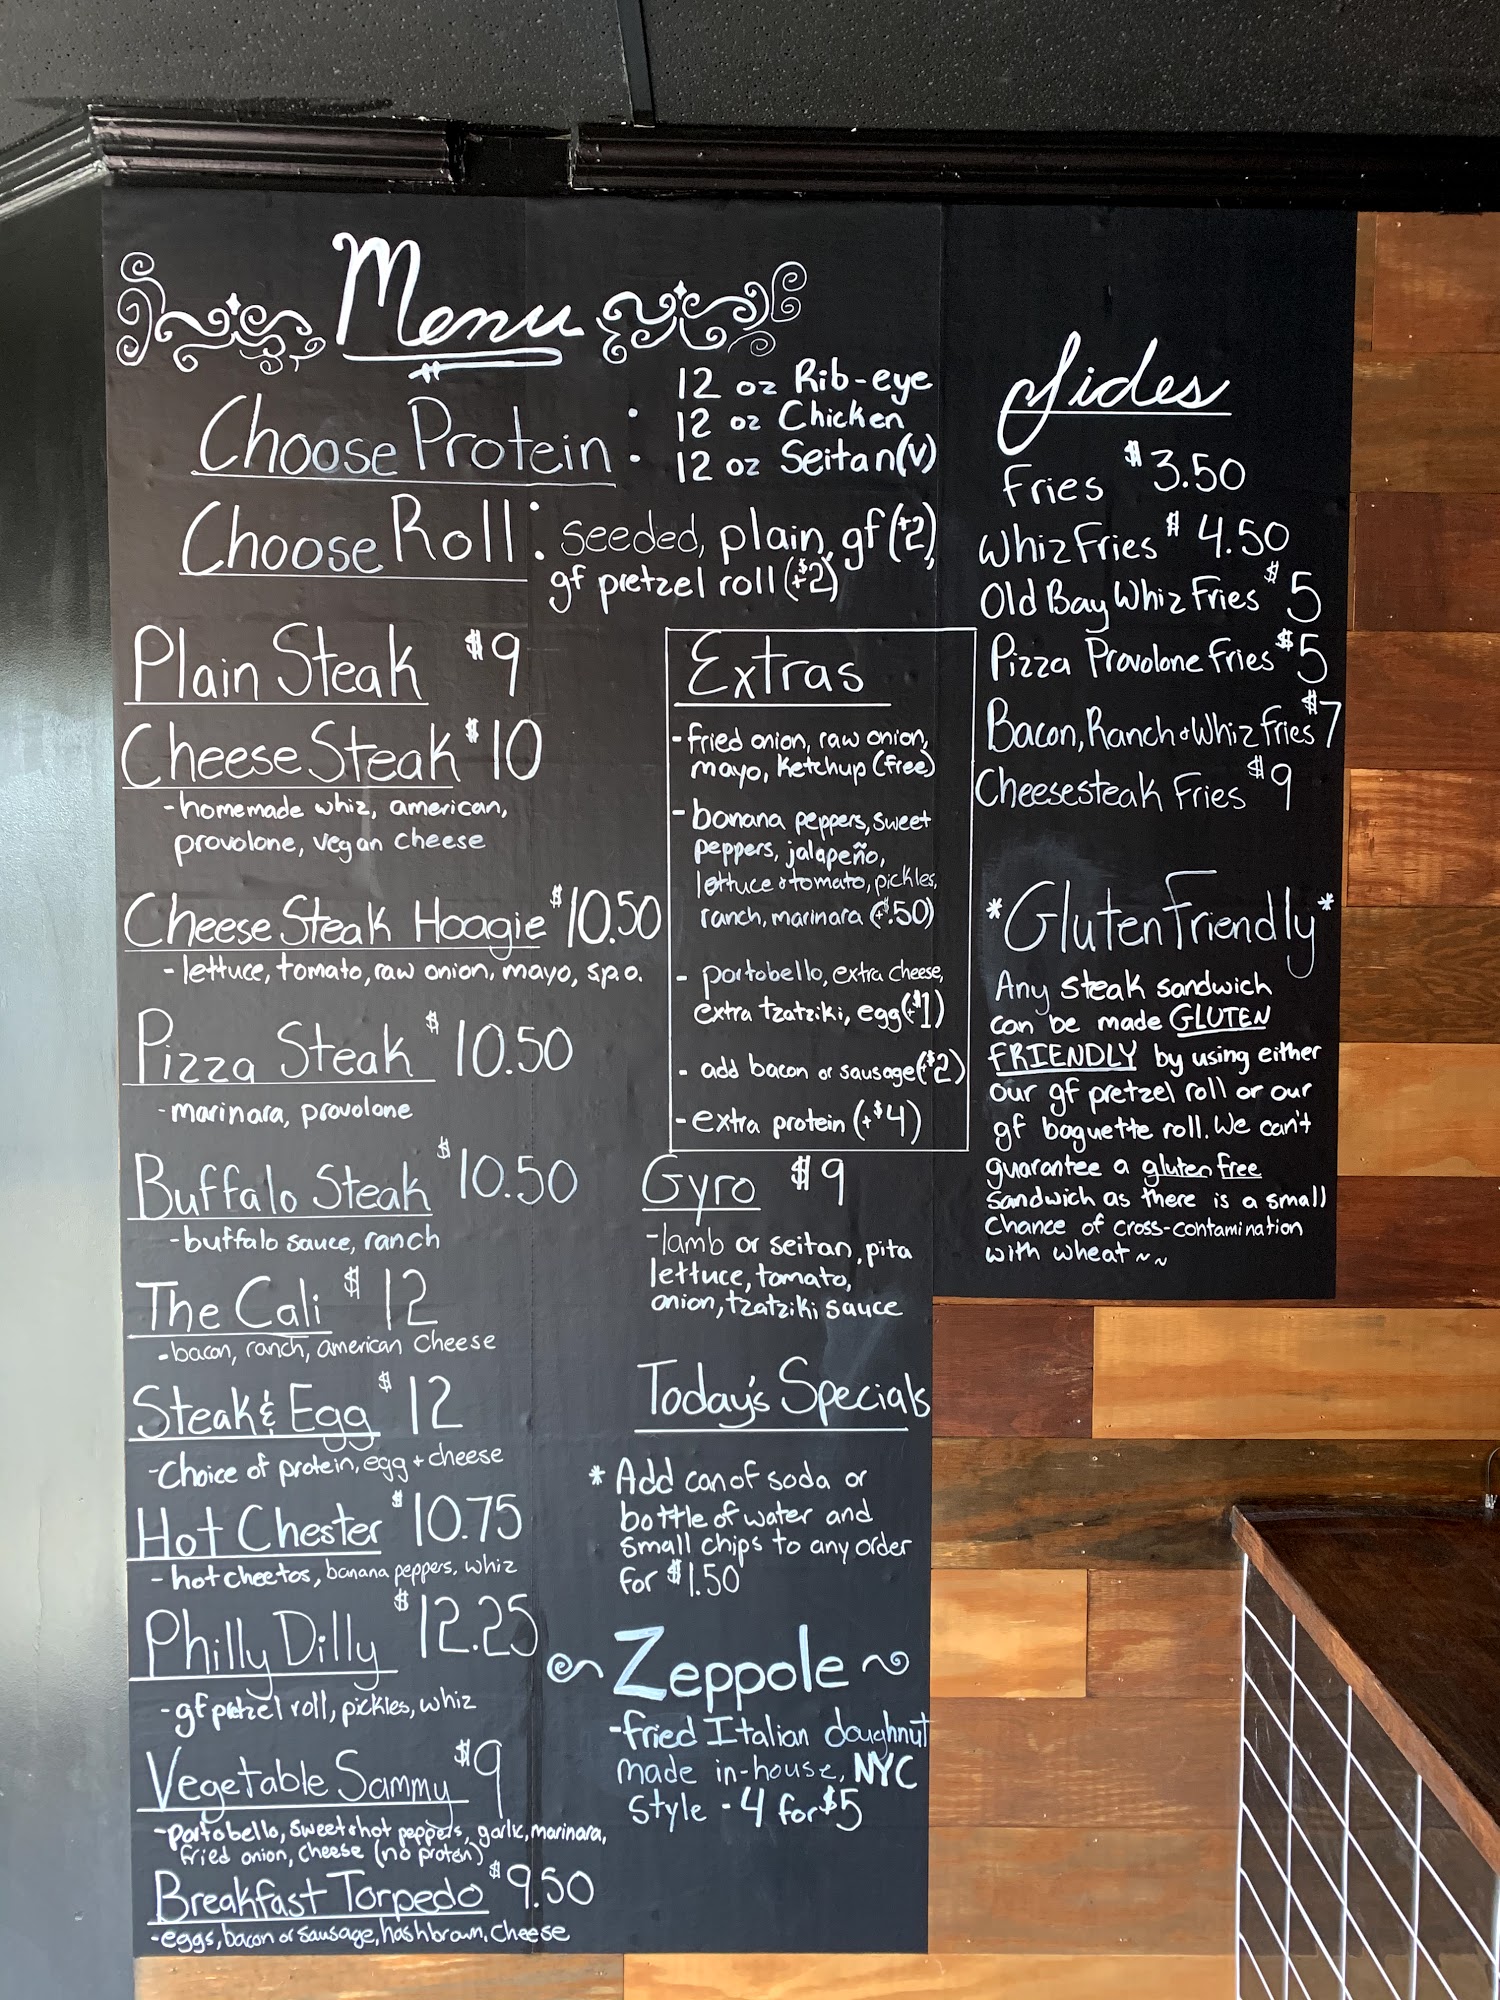 Menu
Choose Protein:
12 oz Rib-eye
12 oz Chicken
12 oz Seitan(v)
Choose Roll: seeded, plain, gf (+2),
gf pretzel roll (+$2)
Plain Steak $9
Cheese Steak $10
-homemade whiz, american,
provolone, vegan cheese
Cheese Steak Hoagie $10.50
-lettuce, tomato, raw onion, mayo, s.p.o.
Pizza Steak $10.50
-marinara, provolone
Buffalo Steak $10.50
-buffalo sauce, ranch
The Cali $12
-bacon, ranch, american cheese
Steak & Egg $12
-Choice of protein, egg + cheese
Hot Chester $10.75
-hot cheetos, banana peppers, whiz
Philly Dilly $12.25
-gf pretzel roll, pickles, whiz
Vegetable Sammy $9
-portobello, sweet + hot peppers, garlic, marinara,
fried onion, cheese (no protein)
Breakfast Torpedo $9.50
-eggs, bacon or sausage, hashbrown, cheese
Extras
-fried onion, raw onion,
mayo, Ketchup (free)
-banana peppers, sweet
peppers, jalapeño,
lettuce + tomato, pickles,
ranch, marinara (+$.50)
- portobello, extra cheese,
extra tzatziki, egg (+$1)
- add bacon or sausage (+$2)
-extra protein (+$4)
Gyro $9
-lamb or seitan, pita
lettuce, tomato,
onion, tzatziki sauce
Today's Specials
* Add can of soda or
bottle of water and
small chips to any order
for $1.50
Zeppole
-fried Italian doughnut
made in-house, NYC
style - 4 for $5
Sides
Fries $3.50
Whiz Fries $4.50
Old Bay Whiz Fries $5
Pizza Provolone Fries $5
Bacon, Ranch + Whiz Fries $7
Cheesesteak Fries $9
*Gluten Friendly*
Any steak sandwich
can be made GLUTEN
FRIENDLY by using either
our gf pretzel roll or our
gf baguette roll. We can't
guarantee a gluten free
sandwich as there is a small
chance of cross-contamination
with wheat~~